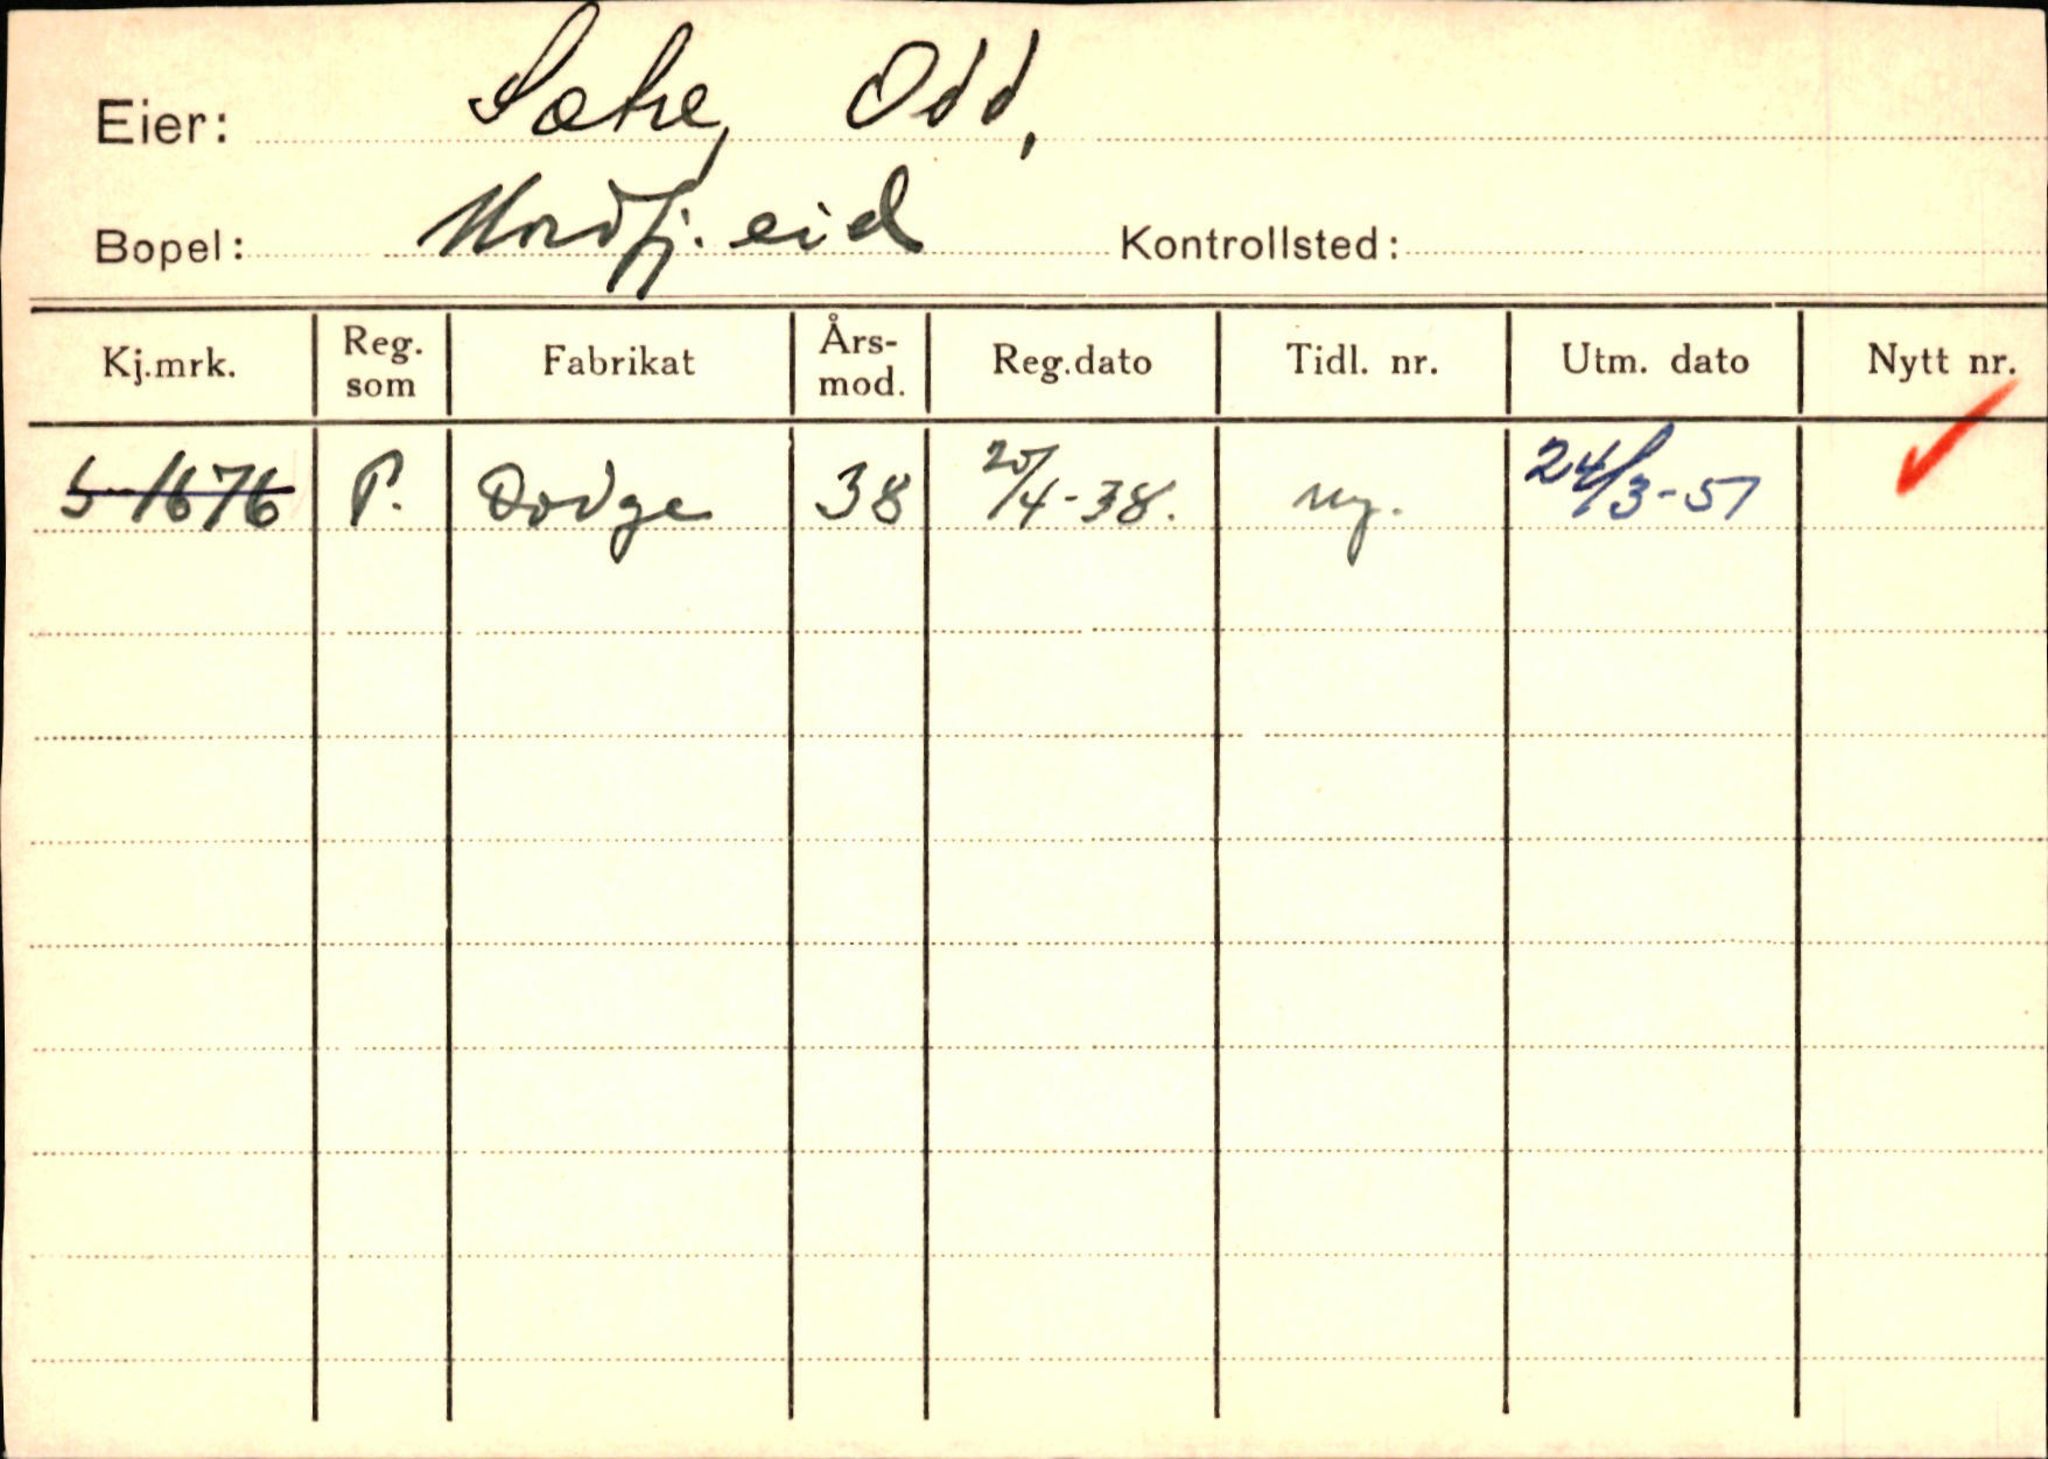 Eier: Sætre, Odd,
Bopel: Nordfj. eid Kontrollsted:
Kj.mrk. Reg. som Fabrikat Års-mod. Reg.dato Tidl. nr. Utm. dato Nytt nr.
S-1676 P. Dodge 38 25/4-38. ny. 24/3-51 ✓